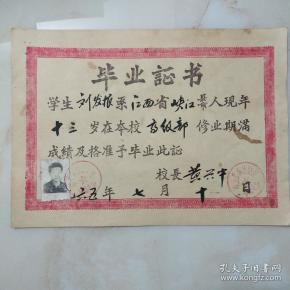 毕业証书
学生刘发根系江西省峡江县人现年
十三岁在本校高级部修业期满
成績及格准予毕业此証
校長黄兴中
六五年七月十日
孔夫子旧书网